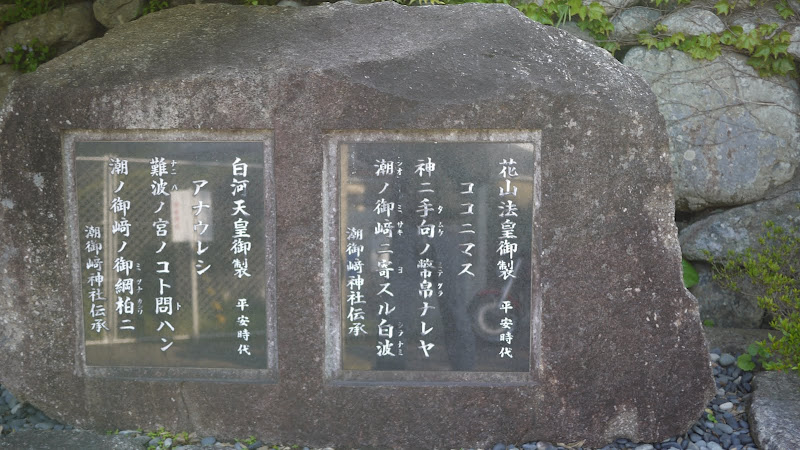 花山法皇御製 平安時代
ココニマス
神ニ手向ノ幣帛ナレヤ
潮ノ御﨑ニ寄スル白波
潮御﨑神社伝承
白河天皇御製 平安時代
アナウレシ
難波ノ宮ノコト問ハン
潮ノ御﨑ノ御綱柏ニ
潮御﨑神社伝承